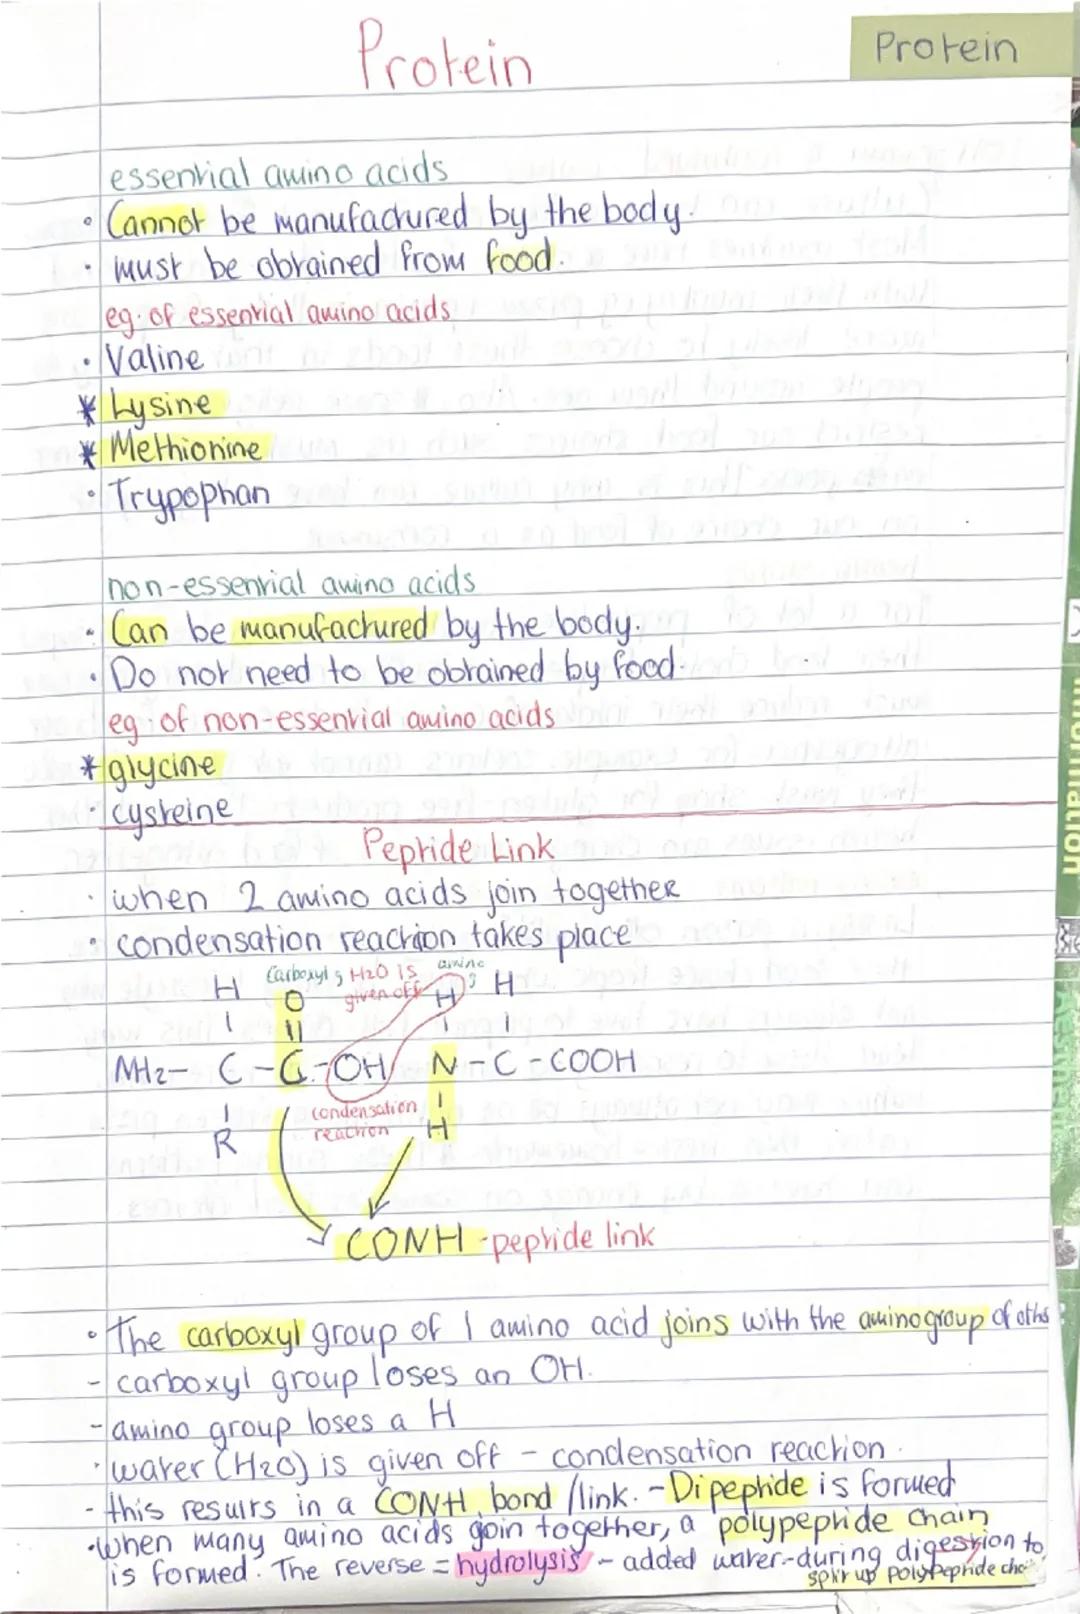 Protein
Protein
essential amino acids
• Cannot be manufactured by the body.
• must be obtained from food.
eg. of essential amino acids
• Valine
* Lysine
* Methionine
• Trypophan
non-essential amino acids
• Can be manufactured by the body.
• Do not need to be obtained by food.
eg. of non-essential amino acids
* glycine
• cysteine
Peptide Link
• when 2 amino acids join together
• condensation reaction takes place
Carboxyl g H2O is given off amine g
H O H H
NH2- C - C - OH N - C - COOH
condensation
reaction
R H
CONH - peptide link
• The carboxyl group of 1 amino acid joins with the amino group of
- carboxyl group loses an OH.
- amino group loses a H
• water (H2O) is given off - condensation reaction.
- this results in a CONH bond /link. - Dipeptide is formed
• when many amino acids join together, a polypeptide chain
is formed. The reverse = hydrolysis - added water-during digestion to
split up polypeptide
information